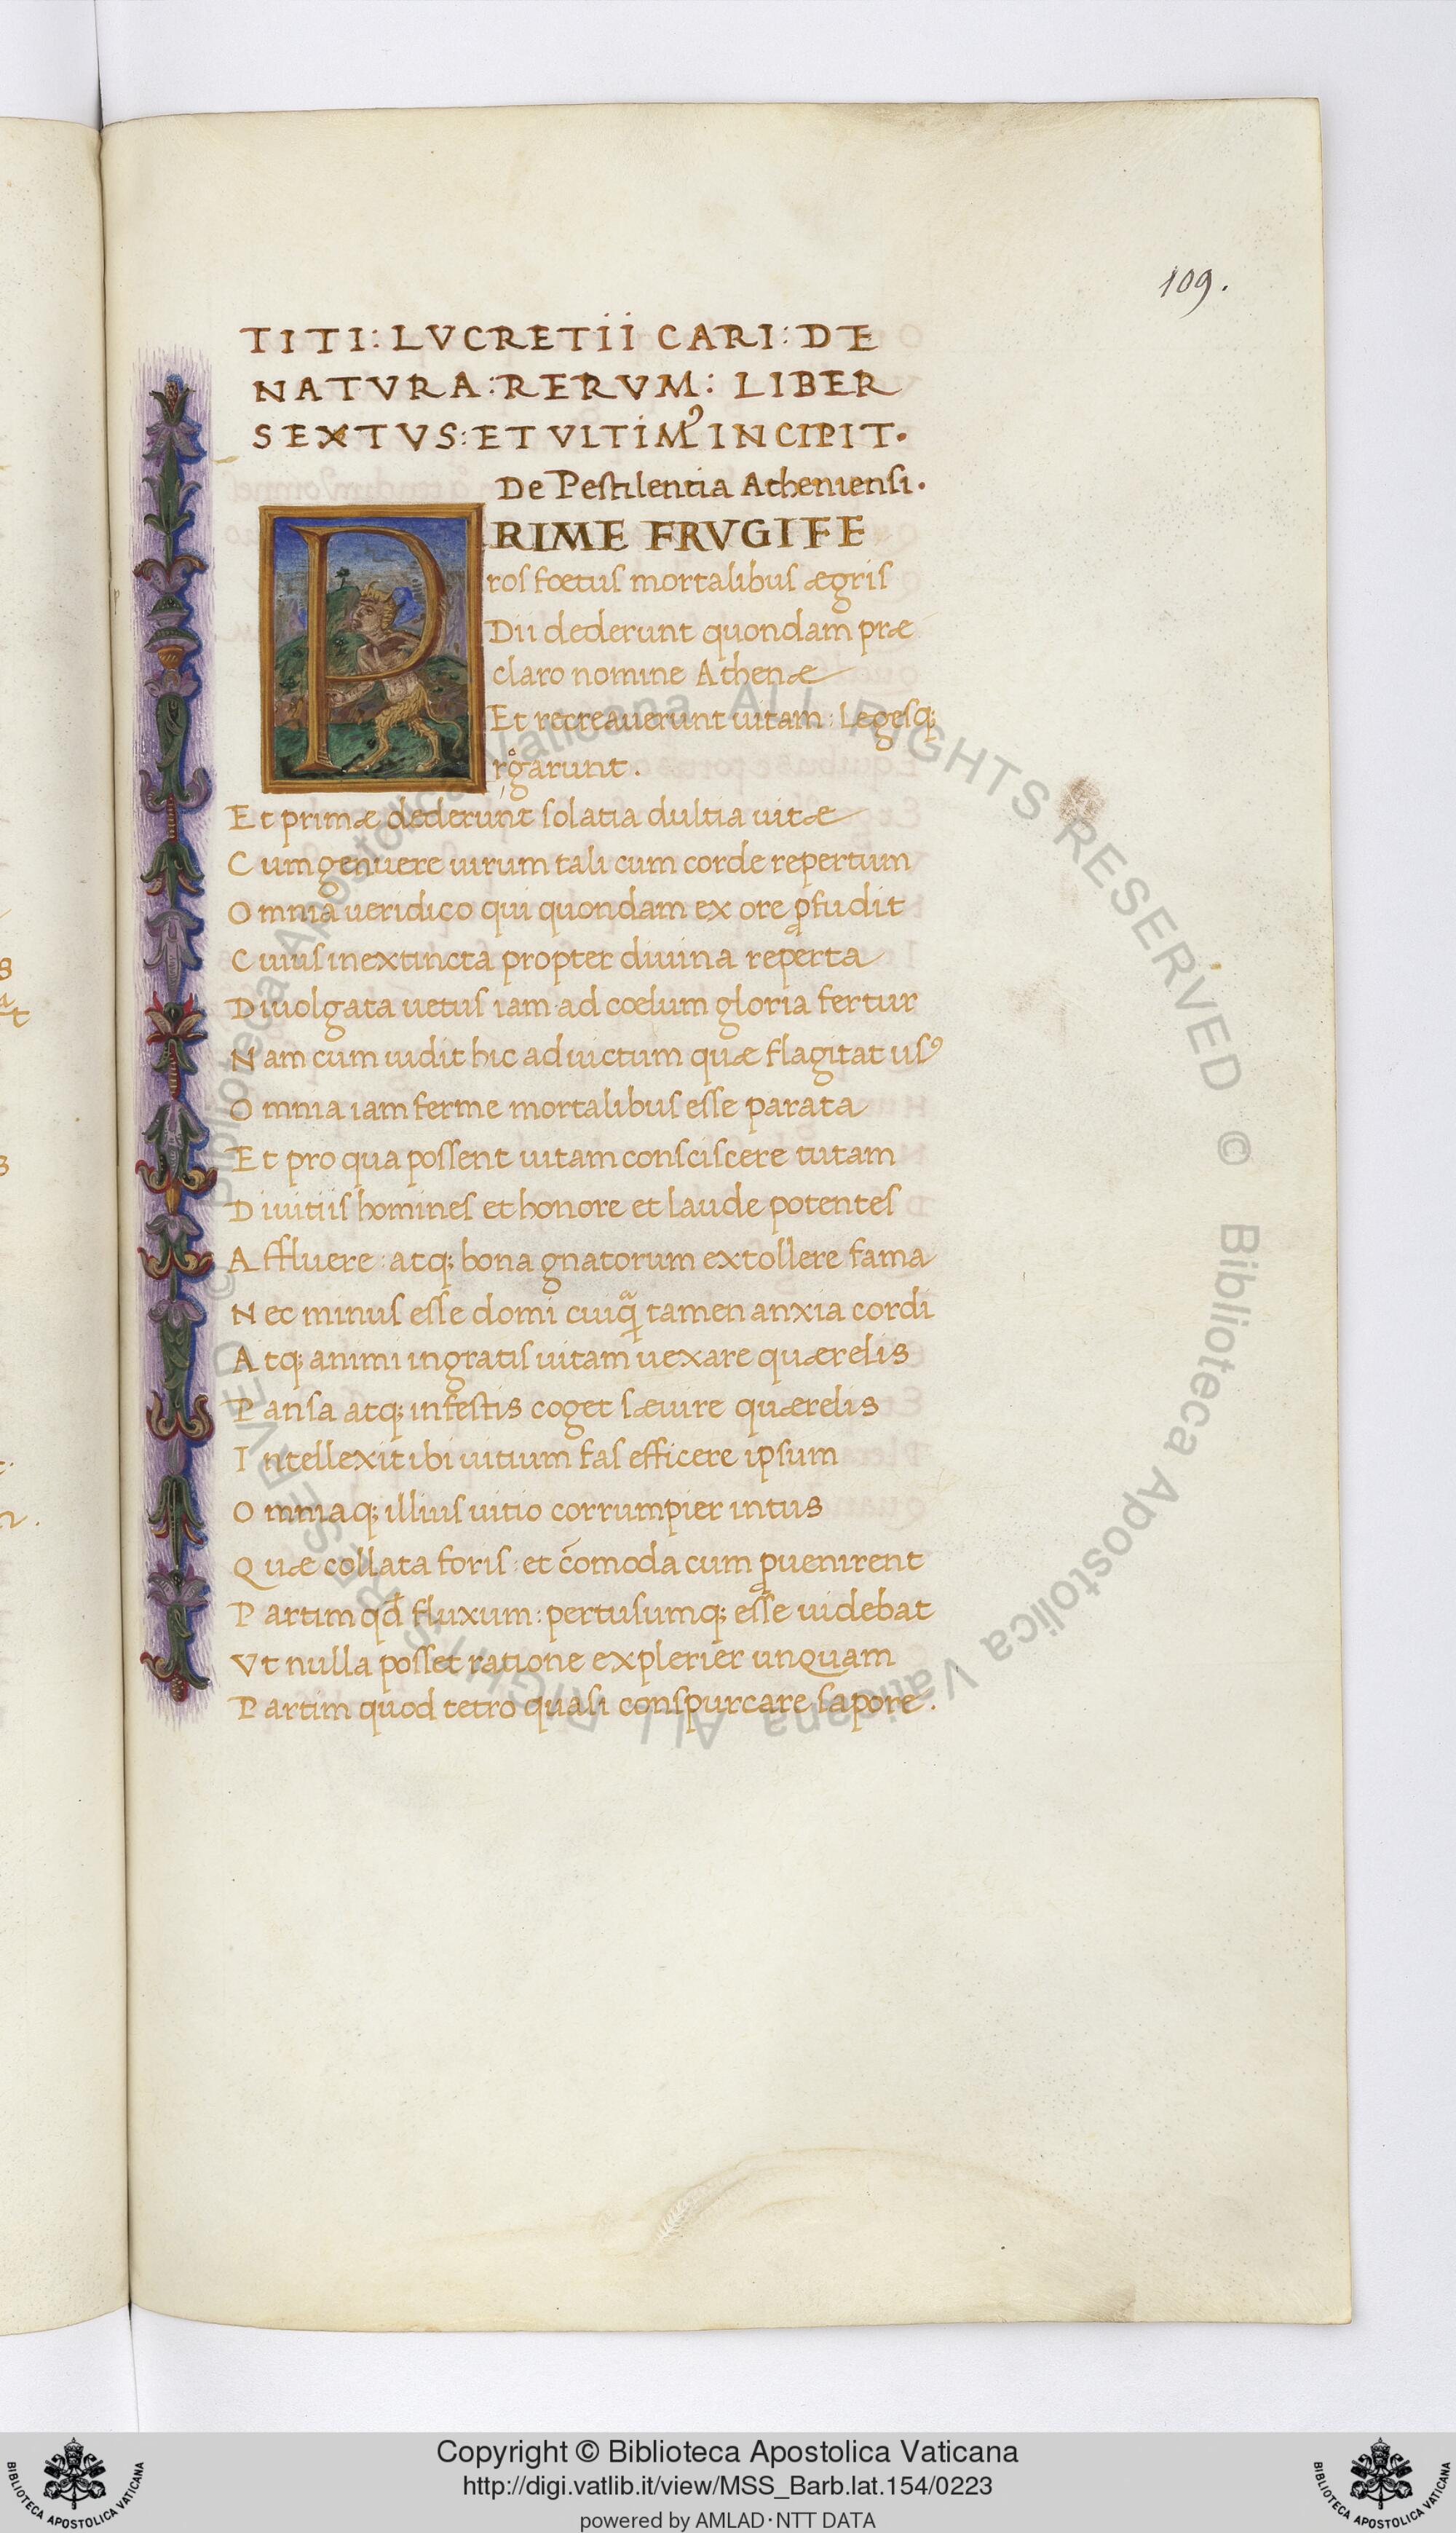 109.
TITI: LVCRETII CARI: DE
NATVRA: RERVM: LIBER
SEXTVS: ET VLTIMꝰ INCIPIT.
De Pestilentia Atheniensi.
PRIME FRVGIFE
ros fœtus mortalibus ægris
Dii dederunt quondam præ
claro nomine Athenæ
Et recreauerunt uitam: Legesq;
rͦgarunt.
Et primæ dederunt solatia dultia uitæ
Cum genuere uirum tali cum corde repertum
Omnia ueridico qui quondam ex ore ꝓfudit
Cuius inextincta propter diuina reperta
Diuolgata uetus iam ad cœlum gloria fertur
Nam cum uidit hic ad uictum quæ flagitat usꝰ
Omnia iam ferme mortalibus esse parata
Et pro qua possent uitam consciscere tutam
Diuitiis homines et honore et laude potentes
Affluere: atq; bona gnatorum extollere fama
Nec minus esse domi cuiqᷓ tamen anxia cordi
Atq; animi ingratis uitam uexare quærelis
Pansa atq; infestis coget sæuire quærelis
Intellexit ibi uitium fas efficere ipsum
Omniaq; illius uitio corrumpier intus
Quæ collata foris: et cōmoda cum ꝓuenirent
Partim qđ fluxum: pertusumq; esse uidebat
Vt nulla posset ratione explerier unquam
Partim quod tetro quasi conspurcare sapore.
© Biblioteca Apostolica Vaticana ALL RIGHTS RESERVED © Biblioteca Apostolica Vaticana ALL RIGHTS RESERVED
Copyright © Biblioteca Apostolica Vaticana
http://digi.vatlib.it/view/MSS_Barb.lat.154/0223
powered by AMLAD·NTT DATA
BIBLIOTECA APOSTOLICA VATICANA
BIBLIOTECA APOSTOLICA VATICANA